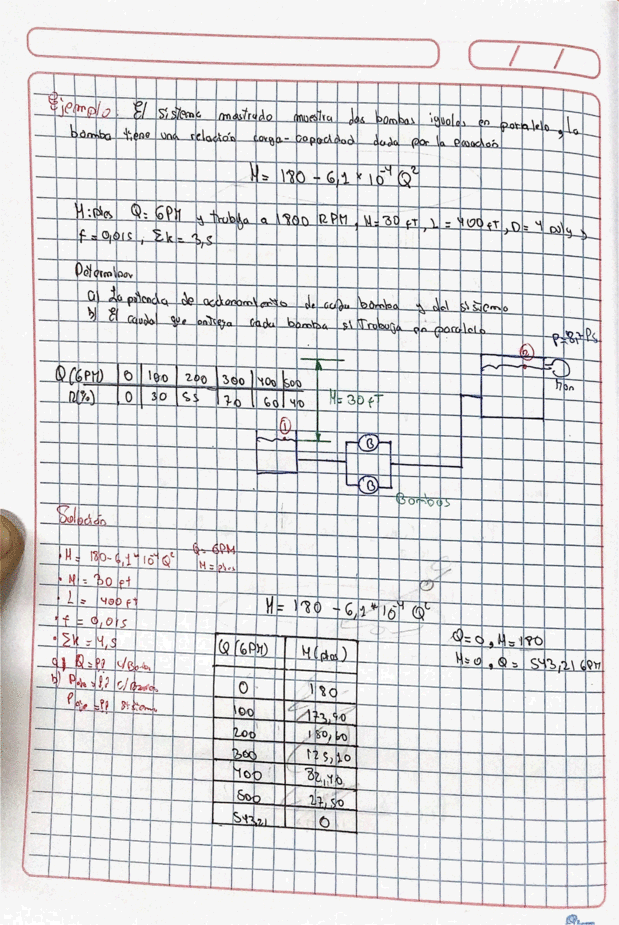 / /
Ejemplo: El sistema mostrado muestra dos bombas iguales en paralelo, la
bomba tiene una relación carga-capacidad dada por la ecuación
H = 180 - 6,1 * 10⁻⁴ Q²
H: pies Q = GPM y trabaja a 1800 RPM, H = 30 FT, L = 400 FT, D = 4 pulg,
f = 0,015, Σk = 3,5
Determinar
a) La potencia de accionamiento de cada bomba y del sistema
b) El caudal que entrega cada bomba si trabaja en paralelo
Q(GPM) 0 100 200 300 400 500
η(%) 0 30 55 70 60 40
H = 30 FT
②
man
①
B
B
Bombas
Solución
• H = 180 - 6,1 * 10⁻⁴ Q² Q = GPM
H = pies
• H = 30 ft
• L = 400 FT
• f = 0,015
• Σk = 4,5
a) Q = ?? c/Bomba
b) ?? c/Bomba
?? Sistema
H = 180 - 6,1 * 10⁻⁴ Q²
Q = 0, H = 180
H = 0, Q = 543,21 GPM
Q(GPM) H(pies)
0 180
100 173,90
200 180,60
300 125,10
400 82,40
500 27,50
543,21 0